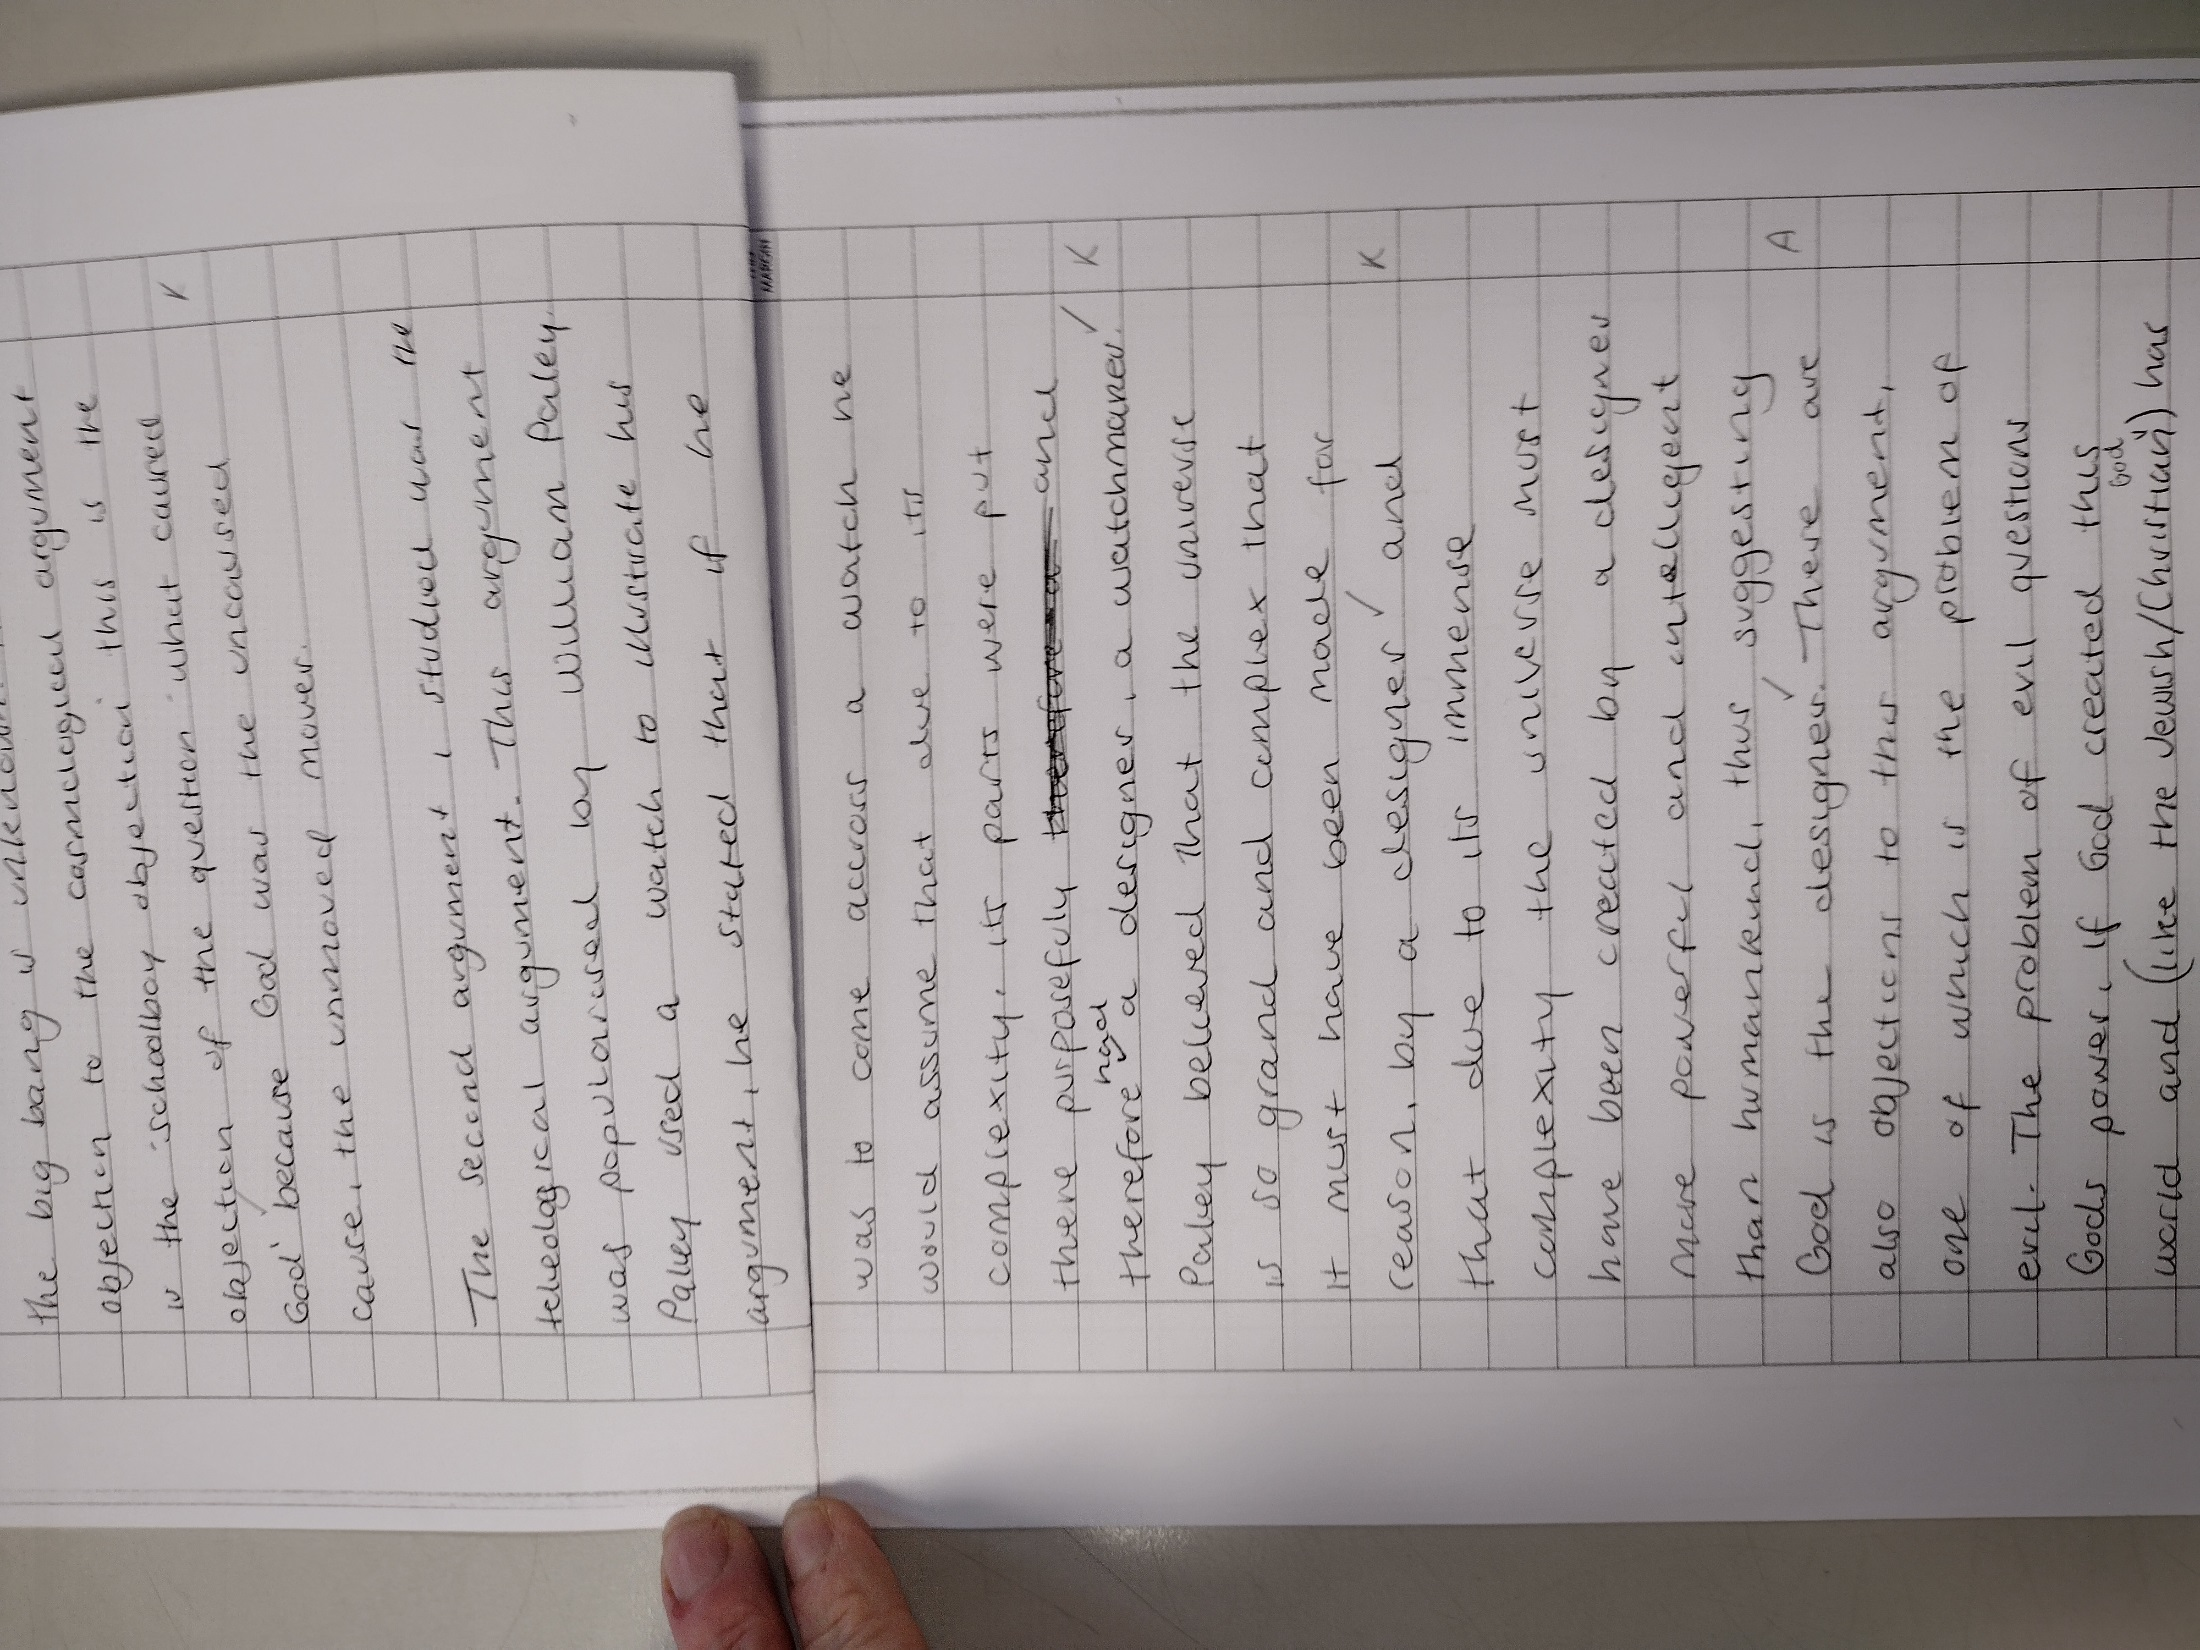 the big bang is unknown
objection to the cosmological argument
is the 'schoolboy objection' this is the
objection of the question 'what caused
God' because God was the uncaused
cause, the unmoved mover.
K
The second argument I studied was the
teleological argument. This argument
was popularised by William Paley.
Paley used a watch to illustrate his
argument, he stated that if he
was to come accross a watch he
would assume that due to its
complexity, its parts were put
there purposefully and
therefore had a designer, a watchmaker. K
Paley believed that the universe
is so grand and complex that
it must have been made for
reason, by a designer and K
that due to its immense
complexity the universe must
have been created by a designer
more powerful and intelligent
than humankind, thus suggesting
God is the designer. There are A
also objections to this argument,
one of which is the problem of
evil. The problem of evil questions
Gods power, if God created this
world and (like the Jewish/Christian God) has